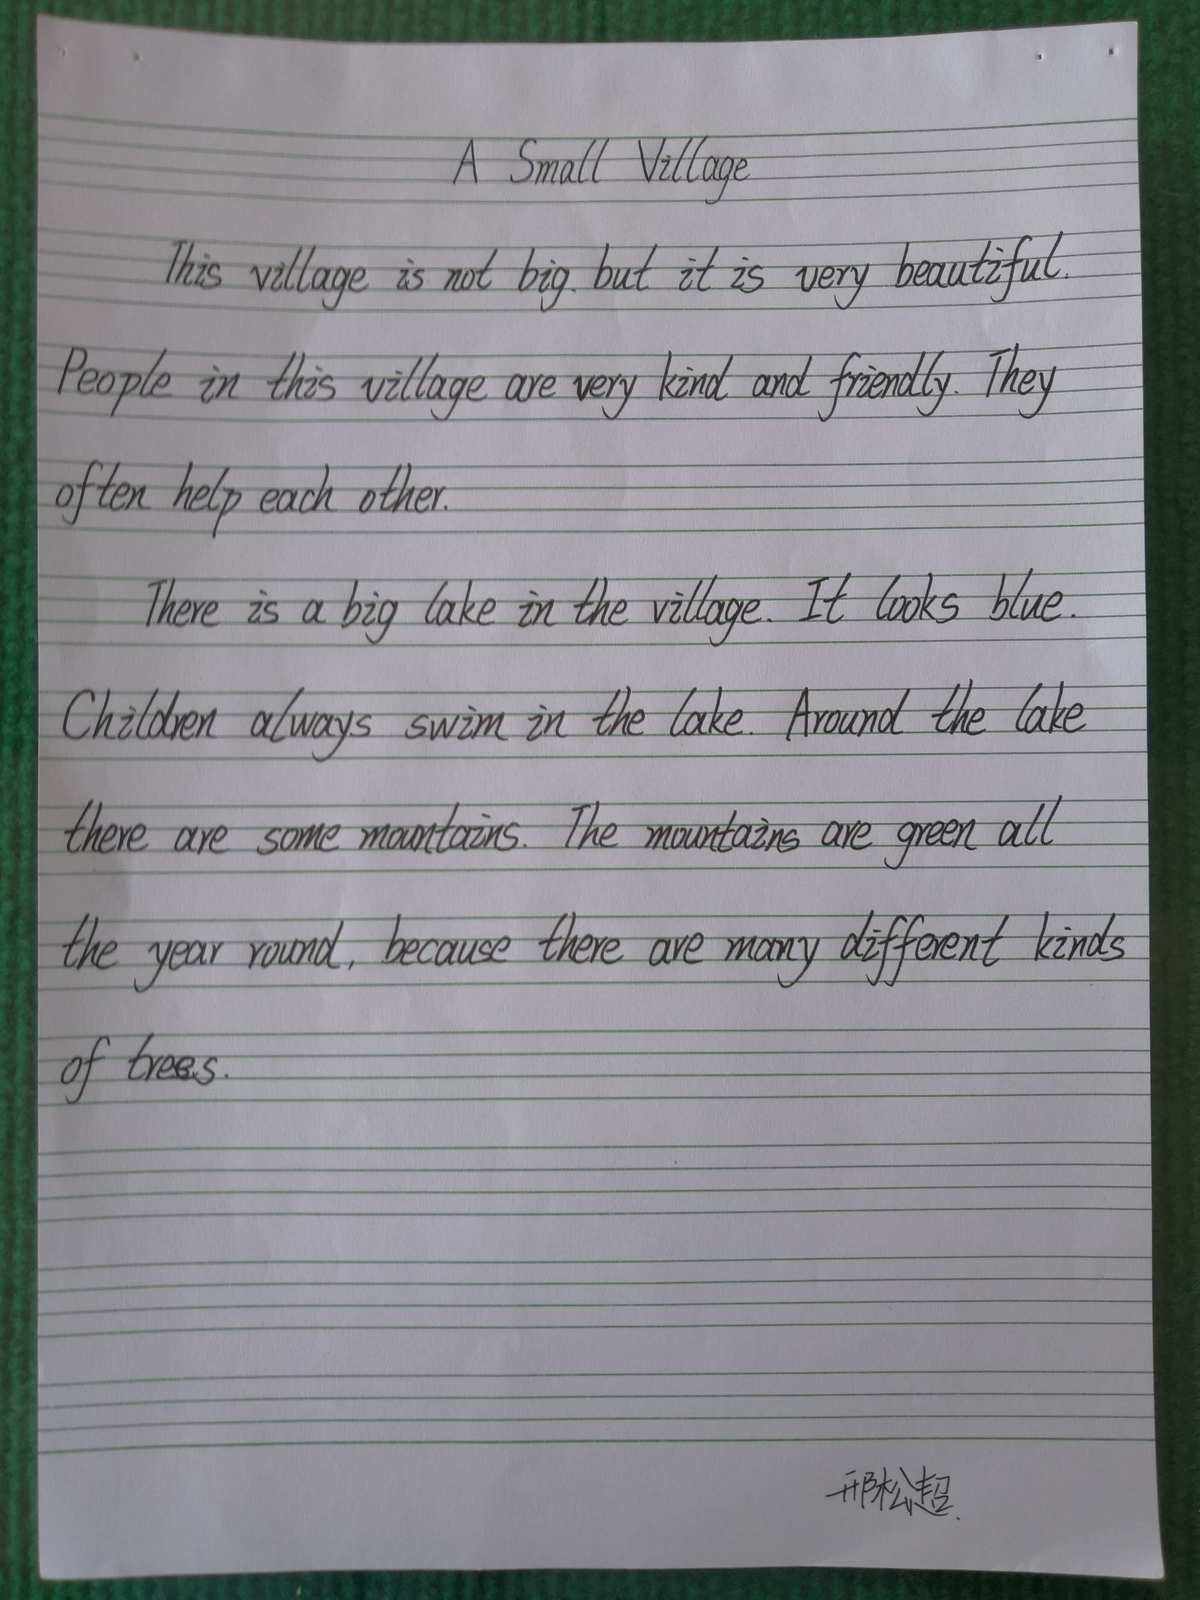 A Small Village
This village is not big. but it is very beautiful.
People in this village are very kind and friendly. They
often help each other.
There is a big lake in the village. It looks blue.
Children always swim in the lake. Around the lake
there are some mountains. The mountains are green all
the year round, because there are many different kinds
of trees.
邢松超.